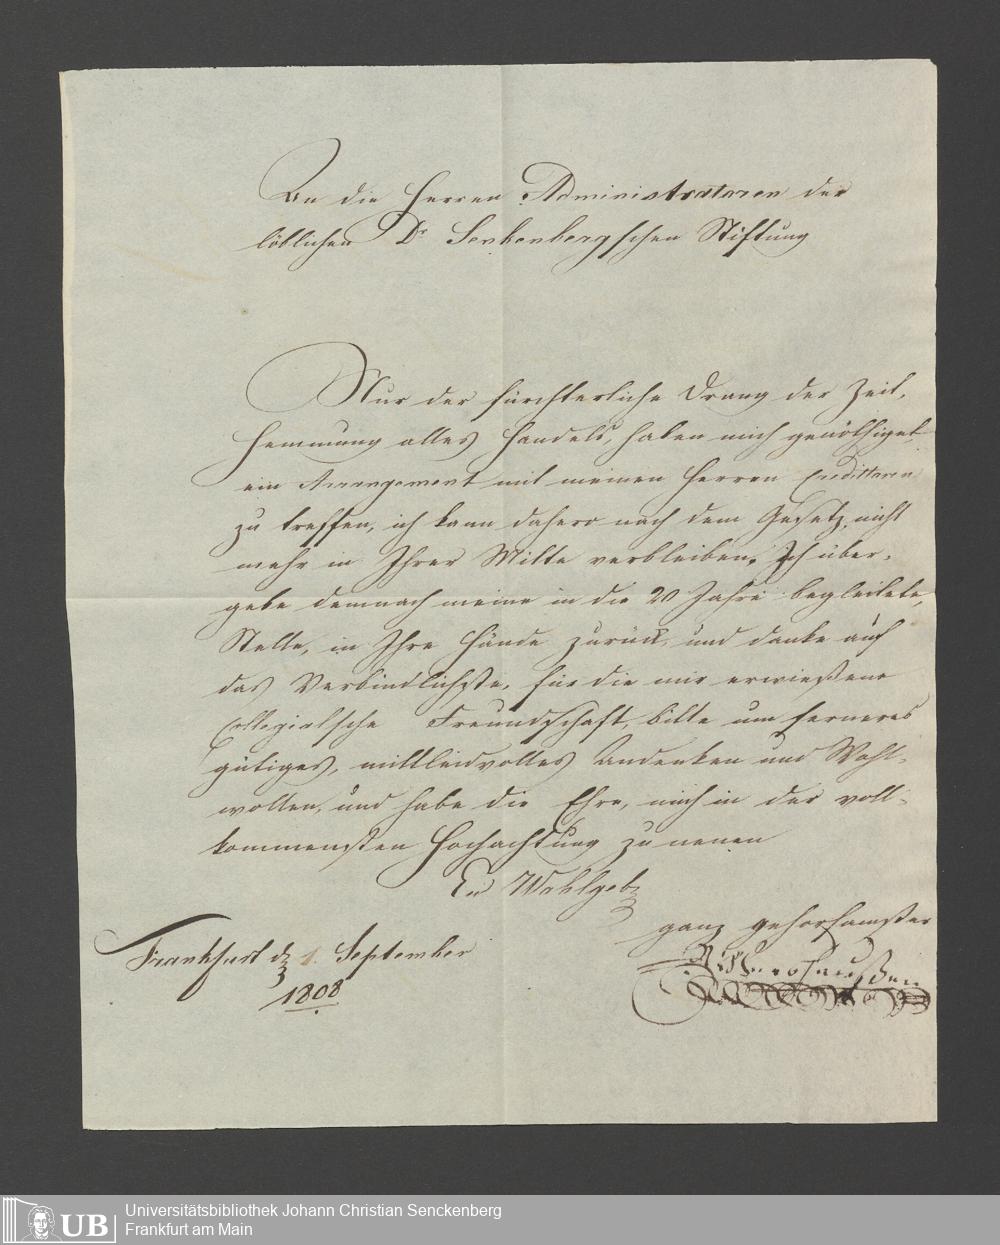 An die Herren Administratoren der
löblichen Dr Senkenbergschen Stiftung
Nur der fürchterliche Drang der Zeit,
Hemmung alles Handels, haben mich genöthiget
ein Arrangement mit meinen Herren Creditoren
zu treffen, ich kann dahero nach dem Gesetz nicht
mehr in Ihrer Mitte verbleiben. Ich über-
gebe demnach meine in die 20 Jahre begleitete,
Stelle, in Ihre Hände zurück, und danke auf
das Verbindlichste, für die mir erwießene
Collegialsche Freundschaft, bitte um ferneres
gütiges, mittleidvolles Andenken und Wohl-
wollen, und habe die Ehre, mich in der voll-
kommensten Hochachtung zu nenen
Ew Wohlgeb
ganz gehorsamster
Frankfurt d 1. September
1808
UB
Universitätsbibliothek Johann Christian Senckenberg
Frankfurt am Main